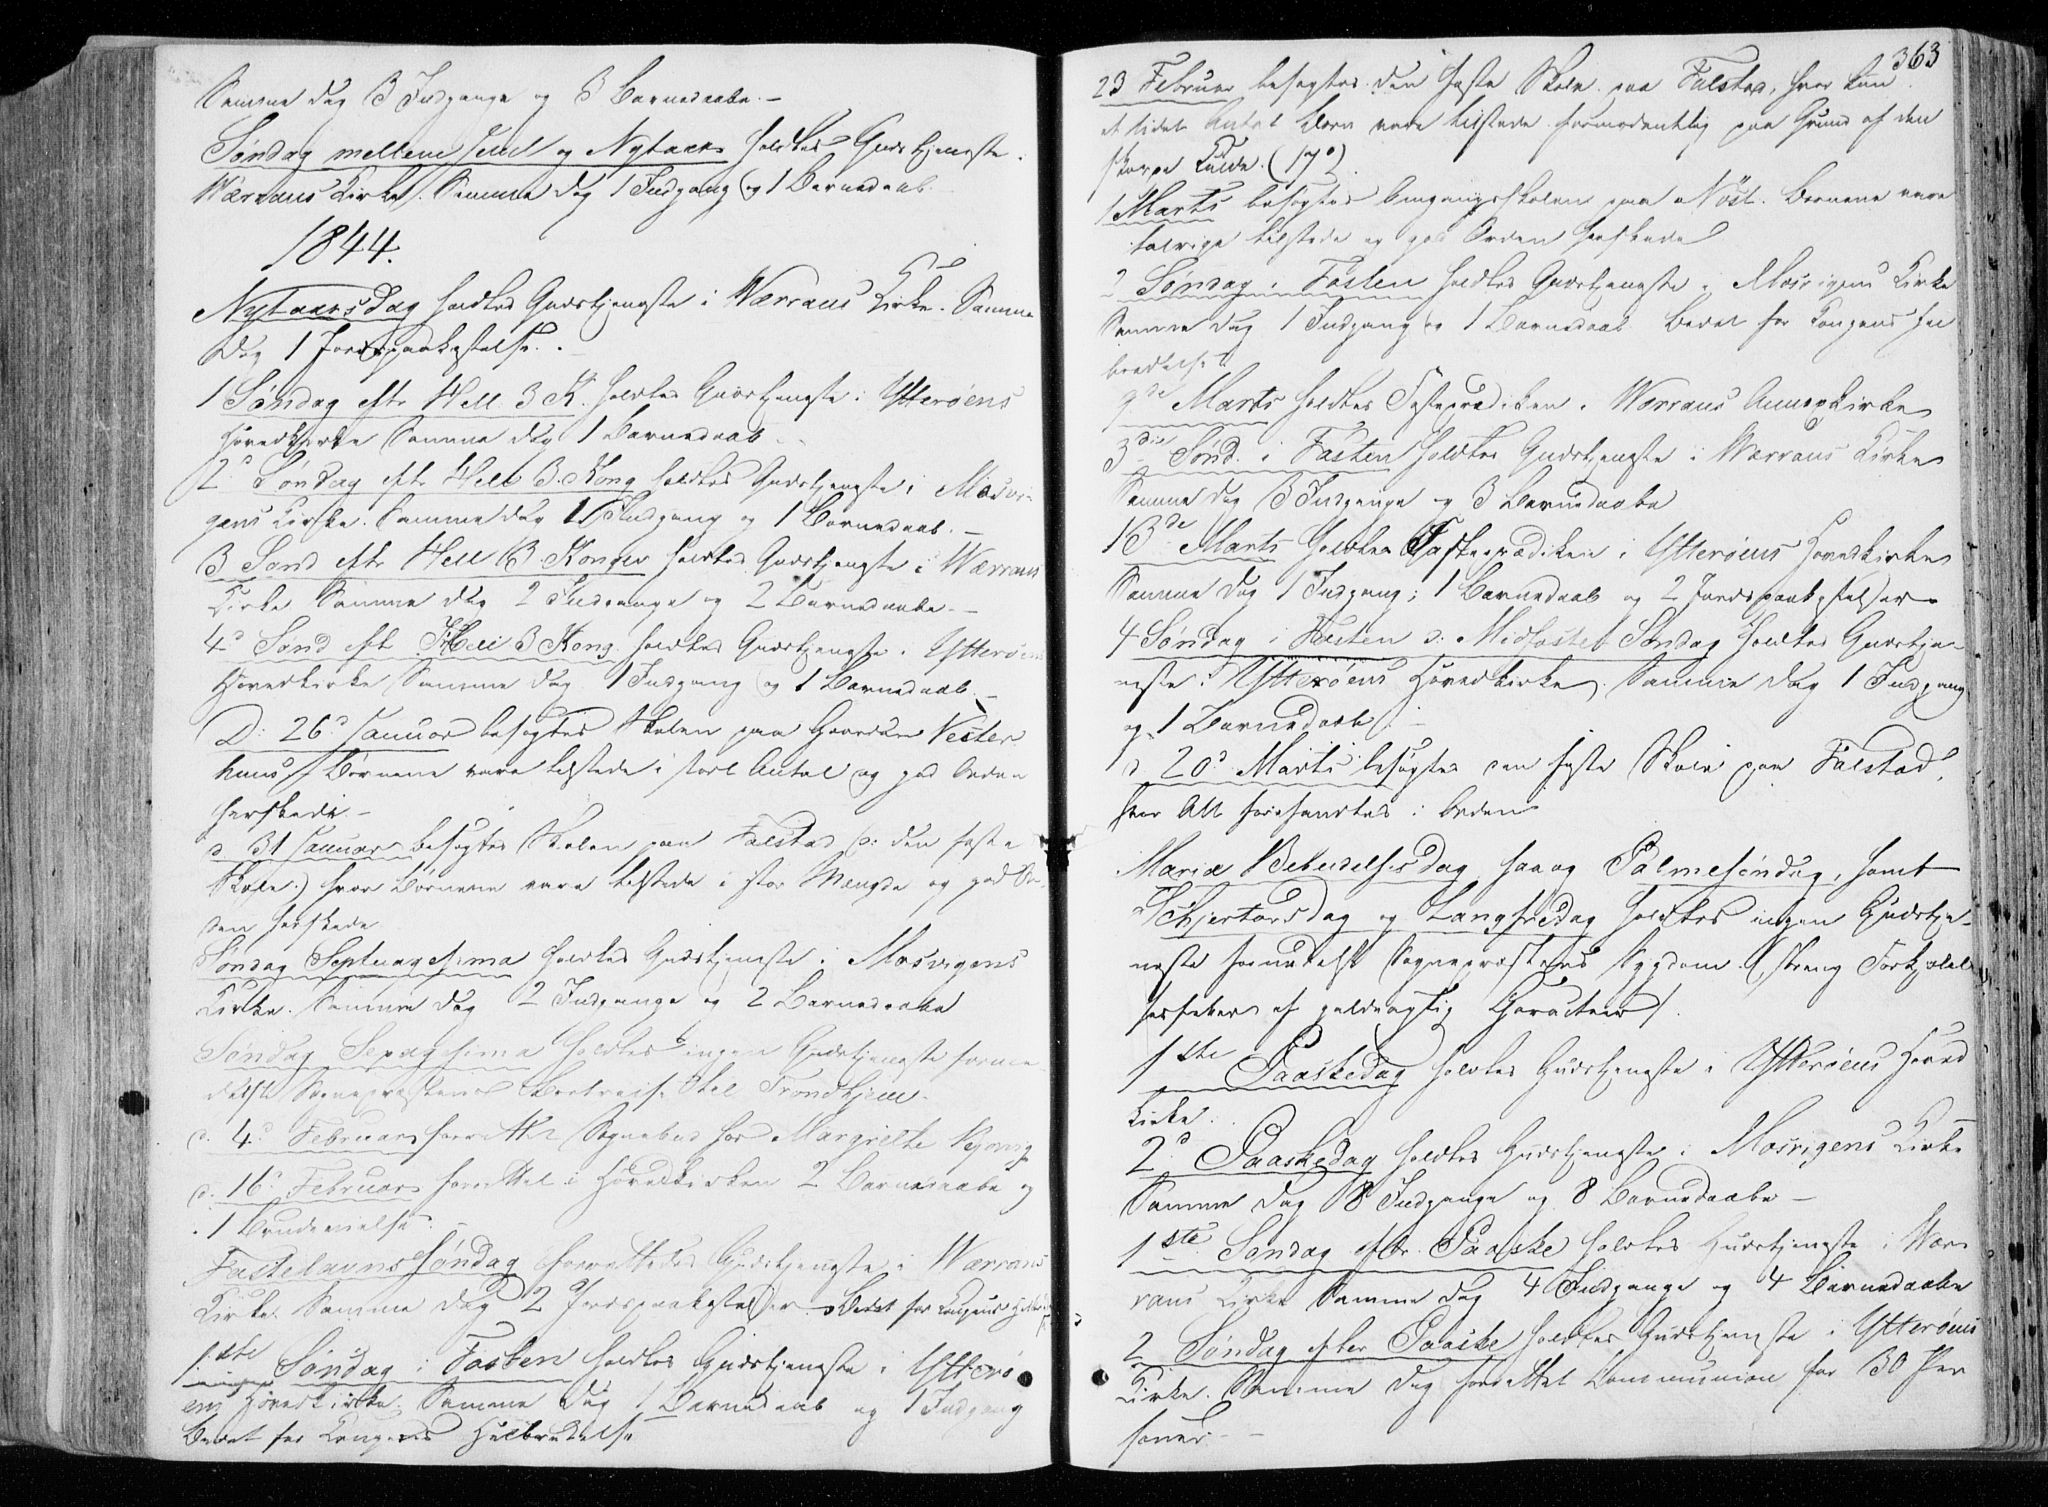 Samme Dag 3 Indgange og 3 Barnedaabe. –
Søndag mellem Juul og Nytaar holdtes Gudstjeneste i
Værrans Kirke. Samme Dag 1 Indgang og 1 Barnedaab.
1844.
Nytaarsdag holdtes Gudstjeneste i Værrans Kirke. Samme
Dag 1 Jordpaakastelse. –
1 Søndag eftr Hell 3 K. holdtes Gudstjeneste i Ytterøens
Hovedkirke Samme Dag 1 Barnedaab –
2d Søndag eftr Hell 3 Kong holdtes Gudstjeneste i Mosvi-
gens Kirke. Samme Dag 1 Indgang og 1 Barnedaab. –
3 Sønd eftr Hell 3 Konger holdtes Gudstjeneste i Værrans
Kirke Samme Dag 2 Indgange og 2 Barnedaabe. –
4d Sønd eft Hell 3 Kong. holdtes Gudstjeneste i Ytterøens
Hovedkirke Samme Dag 1 Indgang og 1 Barnedaab. –
D: 26d Januar besøgtes Skolen paa Gaarden Vester
huus, Børnene vare tilstede i stort Antal og god Orden
herskede. –
d 31 Januar besøgtes Skolen paa Falstad (o: den faste
Skole:) hvor Børnene vare tilstede i stor Mængde og god Or-
den herskede
Søndag Septuagesima holdtes Gudstjeneste i Mosvigens
Kirke. Samme Dag 2 Indgange og 2 Barnedaabe
Søndag Sexagesima holdtes ingen Gudstjeneste forme-
delst Sognepræstens Bortreise til Trondhjem.
d. 4d Februar forrettet Sognebud hos Margrethe
d. 16d Februar forrettet i Hovedkirken 2 Barnedaabe og
1 Brudevielse. –
Fastelavns Søndag forrettedes Gudstjeneste i Værrans
Kirke. Samme Dag 2 Jordpaakastelser. – Bedet for Kongens
1ste Søndag i Fasten holdtes Gudstjeneste i Ytterø-
ens Hovedkirke. Samme Dag 1 Barnedaab og 1 Indgang
Bedet for Kongens Helbredelse
363
23 Februar besøgtes den faste Skole paa Falstad, hvor kun
et lidet Antal Børn vare tilstede formodentlig paa Grund af den
skarpe Kulde. (17°)
1 Marts besøgtes Omgangsskolen paa Nøst. Børnene vare
talrige tilstede og god Orden herskede
2 Søndag i Fasten holdtes Gudstjeneste i Mosvigens Kirke
Samme Dag 1 Indgang og 1 Barnedaab Bedet for Kongens Hel
bredelse
9de Marts holdtes Fasteprædiken i Værrans Annexkirke
3die Sønd. i Fasten holdtes Gudstjeneste i Værrans Kirke
Samme Dag 3 Indgange og 3 Barnedaabe
13de Marts holdtes Fasteprædiken i Ytterøens Hovedkirke
Samme Dag 1 Indgang; 1 Barnedaab og 2 Jordpaakastelser
4 Søndag i Fasten o: Midfaste Søndag holdtes Gudstje-
neste i Ytterøens Hovedkirke. Samme Dag 1 Indgang
og 1 Barnedaab. –
d 20d Marts besøgtes den faste Skole paa Falstad,
hvor Alt forefandtes i Orden
Mariæ Bebudelsesdag, saaog Palmesøndag, samt
Schjertorsdag og Langfredag holdtes ingen Gudstje-
neste formedelst Sognepræstens Sygdom (streng Forkjølel-
sesfeber af galdeagtig Characteer).
1ste Paaskedag holdtes Gudstjeneste i Ytterøens Hoved
kirke.
2d Paaskedag holdtes Gudstjeneste i Mosvigens Kirke
Samme Dag 8 Indgange og 8 Barnedaabe –
1ste Søndag eftr. Paaske holdtes Gudstjeneste i Vær-
rans Kirke Samme Dag 4 Indgange og 4 Barnedaabe
2 Søndag efter Paaske holdtes Gudstjeneste i Ytterøens
Kirke. Samme Dag forrettet Communion for 30 Per
soner –